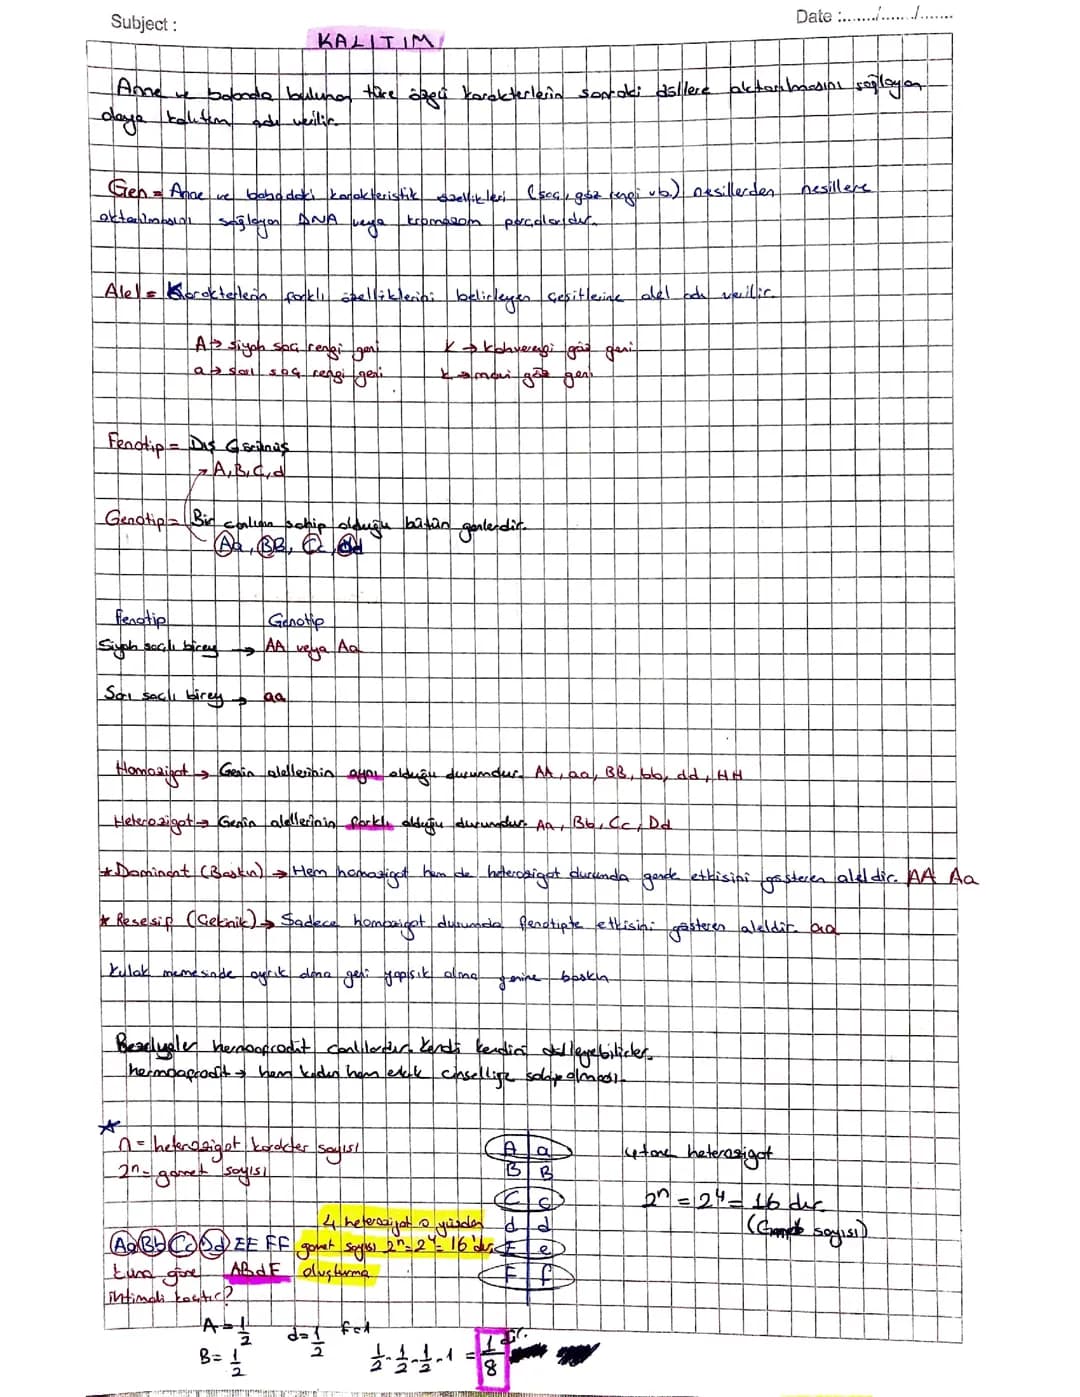 Subject :
Date :......./......./.......
KALITIM
Anne ve babada bulunan türe özgü karakterlerin sonraki döllere aktarılmasını sağlayan
olaya kalıtım adı verilir.
Gen = Anne ve babadaki karakteristik özellikleri (saç, göz rengi vb.) nesillerden nesillere
aktarılmasını sağlayan DNA veya kromozom parçalarıdır.
Alel = Karakterlerin farklı özelliklerini belirleyen çeşitlerine alel adı verilir.
A → siyah saç rengi geni K → kahverengi göz geni
a → sarı saç rengi geni k → mavi göz geni
Fenotip = Dış Görünüş
→ A, B, C, d
Genotip = Bir canlının sahip olduğu bütün genlerdir.
Aa, BB, Cc, dd
Fenotip Genotip
Siyah saçlı birey → AA veya Aa
Sarı saçlı birey → aa
Homozigot → Genin alellerinin aynı olduğu durumdur. AA, aa, BB, bb, dd, HH
Heterozigot → Genin alellerinin farklı olduğu durumdur. Aa, Bb, Cc, Dd
* Dominant (Baskın) → Hem homozigot hem de heterozigot durumda gende etkisini gösteren aleldir. AA Aa
* Resesif (Çekinik) → Sadece homozigot durumda fenotipte etkisini gösteren aleldir. aa
Kulak memesinde ayrık olma geni yapışık olma genine baskın
Bezelyeler hermoafrodit canlılardır. Kendi kendini dölleyebilirler.
hermoafrodit → hem kadın hem erkek cinselliğe sahip olması.
n = heterozigot karakter sayısı
2n = gamet sayısı
A a
B B
C c
d d
E e
F f
4 tane heterozigot
2ⁿ = 2⁴ = 16 dır
(Gamet sayısı)
4 heterozigot o yüzden
Aa Bb Cc Dd EE FF gamet sayısı 2ⁿ = 2⁴ = 16'dır
göre ABdF oluşturma
ihtimali kaçtır?
A = 1/2 d = 1/2 f = 1
B = 1/2 1/2 . 1/2 . 1/2 . 1 = 1/8 dir.